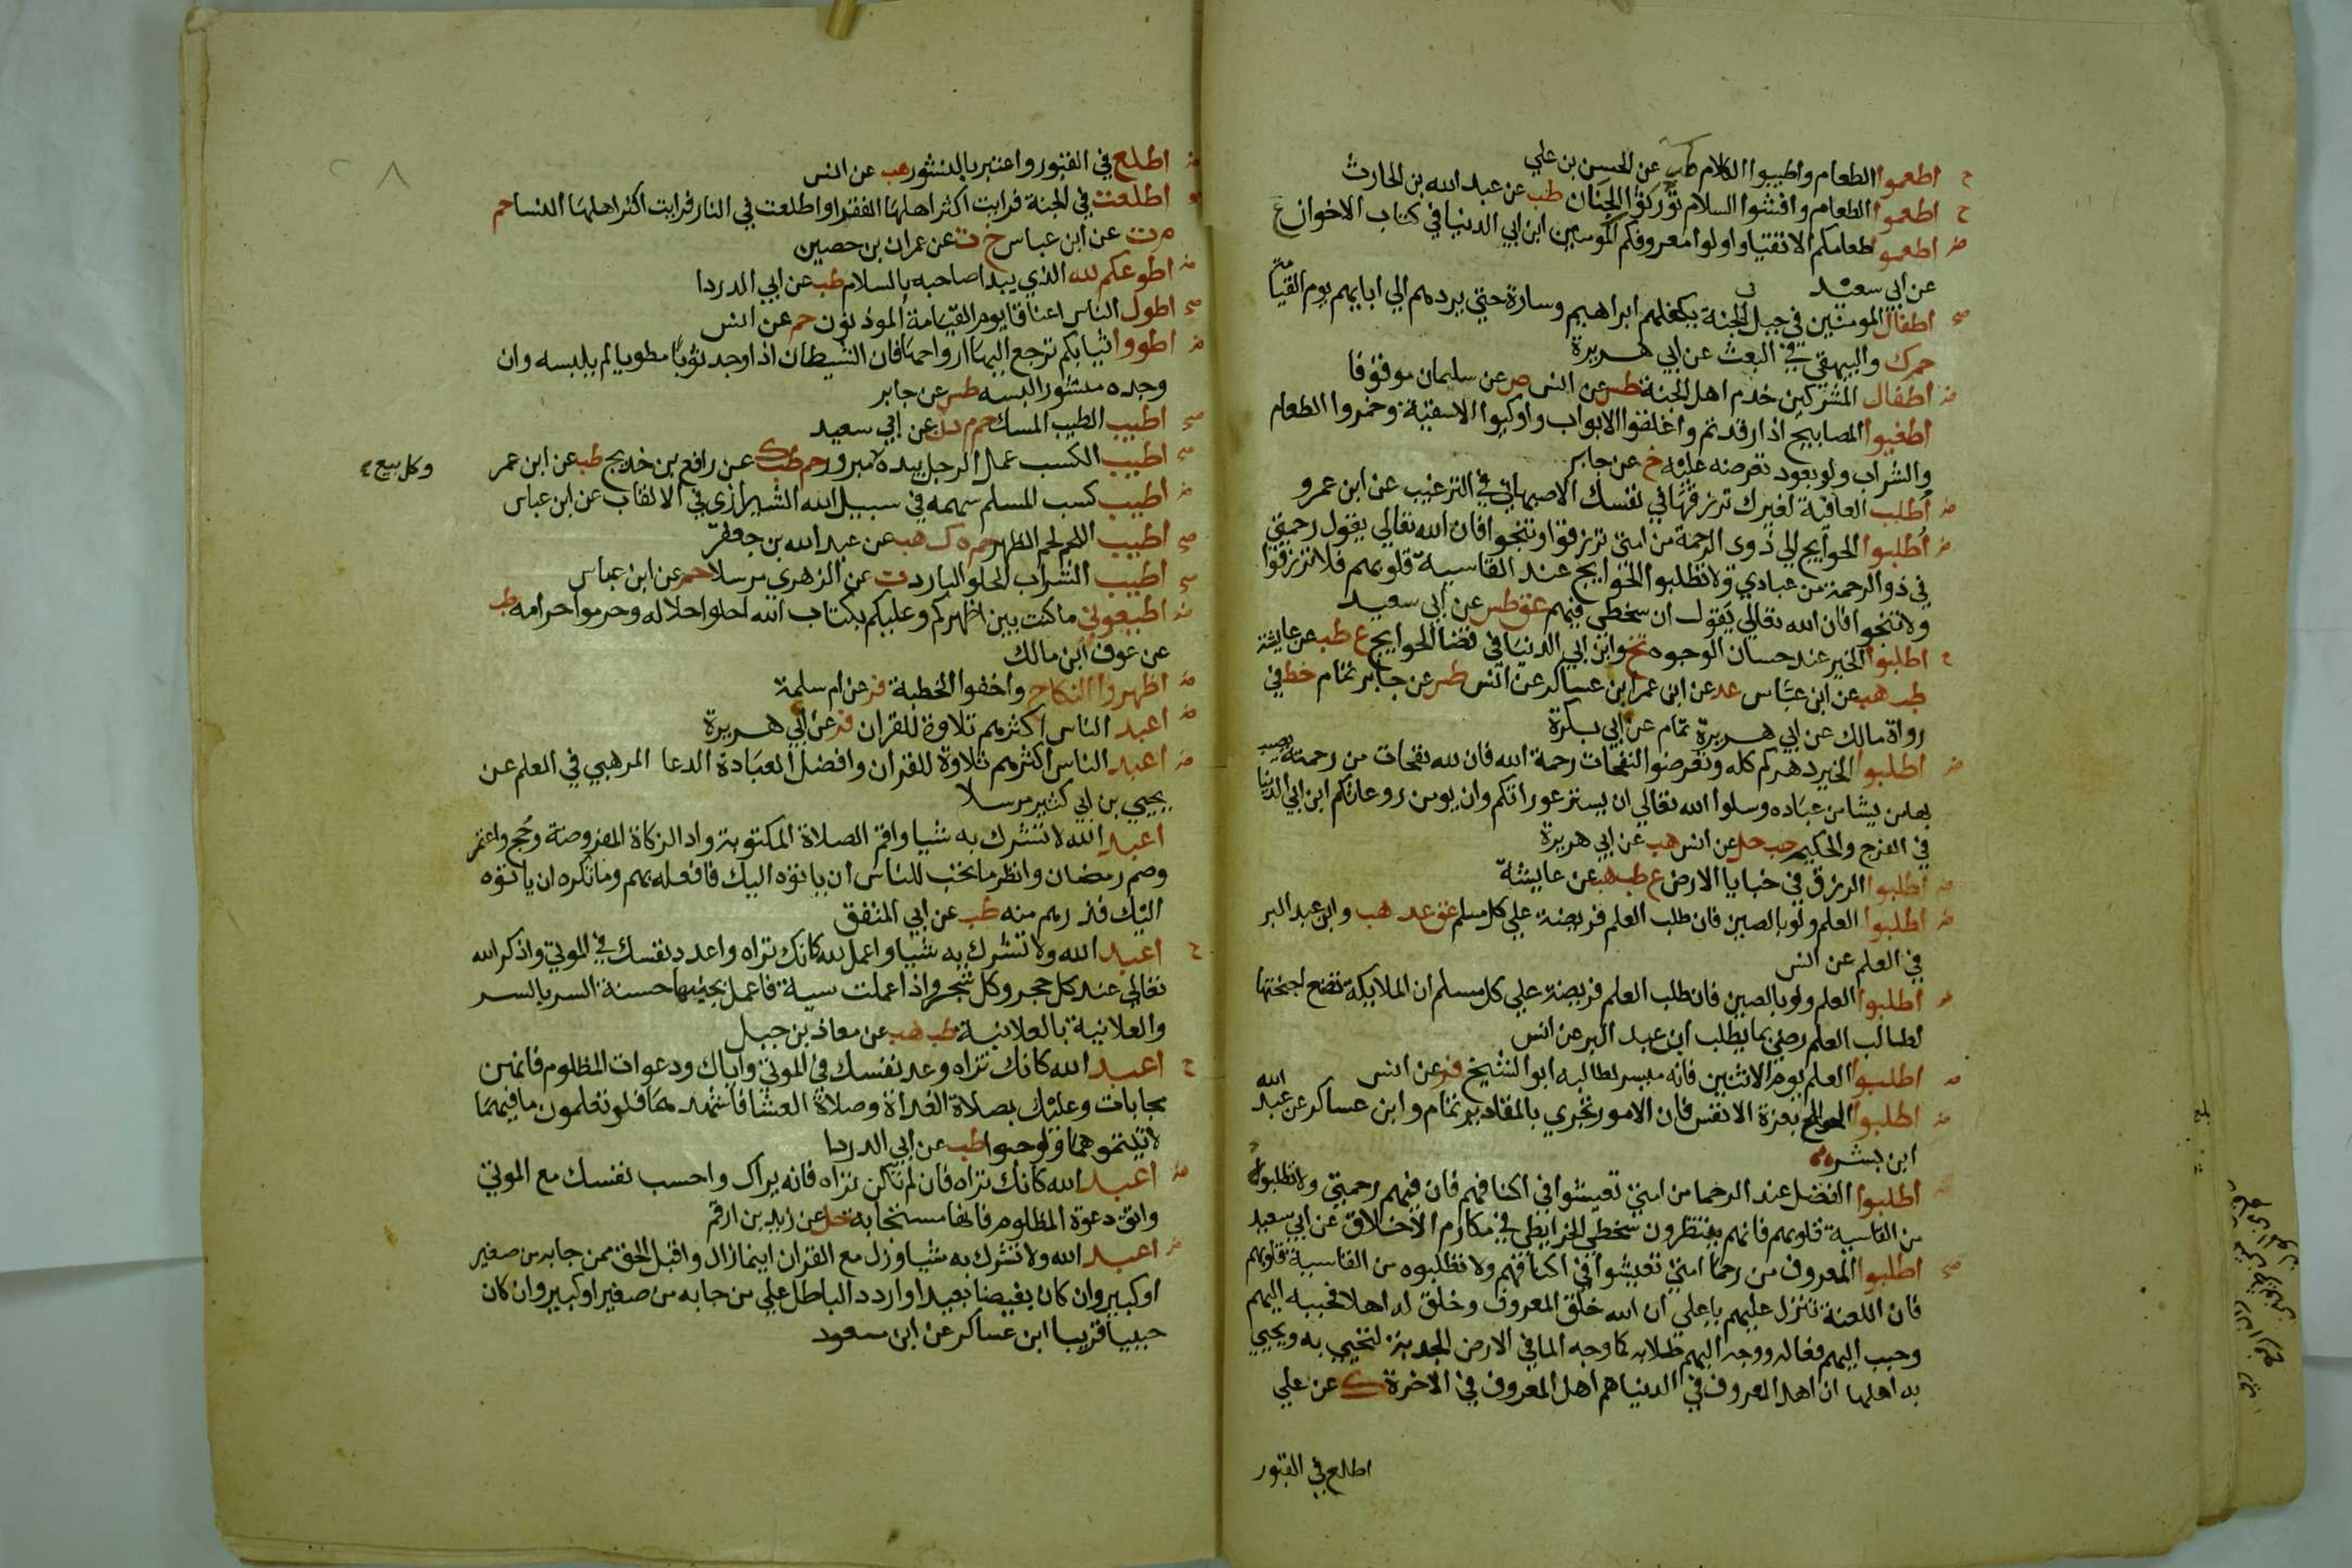 ح اطعموا الطعام واطيبوا الكلام طب عن الحسن بن علي
ح اطعموا الطعام وافشوا السلام تورثوا الجنان طب عن عبد الله بن الحارث
ض اطعموا طعامكم الاتقيا واولوا معروفكم المومنين ابن ابي الدنيا في كتاب الاخوان ع
عن ابي سعيد
صح اطفال المومنين في جبل في الجنة يكفلهم ابراهيم وسارة حتي يردهم الي ابايهم يوم القيامة
حم ك والبيهقي في البعث عن ابي هريرة
ض اطفال المشركين خدم اهل الجنة طس عن انس ص عن سلمان موقوفا
اطفيوا المصابيح اذا رقدتم واغلقوا الابواب واوكيوا الاسقية وخمروا الطعام
والشراب ولو بعود تعرضه عليه خ عن جابر
ض اطلب العافية لغيرك ترزقها في نفسك الاصبهاني في الترغيب عن ابن عمرو
ض اطلبوا الحوايج الي ذوي الرحمة من امتي ترزقوا وتنجوا فان الله تعالي يقول رحمتي
في ذو الرحمة من عبادي ولا تطلبوا الحوايج عند القاسية قلوبهم فلا ترزقوا
ولا تنجوا فان الله تعالي يقول ان سخطي فيهم عق طس عن ابي سعيد
ح اطلبوا الخير عند حسان الوجوه تخ وابن ابي الدنيا في قضا الحوايج ع طب عن عايشة
طب هب عن ابن عباس عد عن ابن عمر ابن عساكر عن انس طس عن جابر تمام خط في
رواة مالك عن ابي هريرة تمام عن ابي بكرة
ض اطلبوا الخير دهركم كله وتعرضوا النفحات رحمة الله فان لله نفحات من رحمته يصيب
بها من يشا من عباده وسلوا الله تعالي ان يستر عوراتكم وان يومن روعاتكم ابن ابي الدنيا
في الفرج والحكيم هب حل عن انس هب عن ابي هريرة
ض اطلبوا الرزق في خبايا الارض ع طب هب عن عايشة
ض اطلبوا العلم ولو بالصين فان طلب العلم فريضة علي كل مسلم عق عد هب وابن عبد البر
في العلم عن انس
ض اطلبوا العلم ولو بالصين فان طلب العلم فريضة علي كل مسلم ان الملايكة تضع اجنحتها
لطالب العلم رضي بما يطلب ابن عبد البر عن انس
ض اطلبوا العلم يوم الاثنين فانه ميسر لطالبه ابو الشيخ فر عن انس
ض اطلبوا الحوايج بعزة الانفس فان الامور تجري بالمقادير تمام وابن عساكر عن عبد الله
ابن بشر
اطلبوا الفضل عند الرحما من امتي تعيشوا في اكنافهم فان فيهم رحمتي ولا تطلبوا
من القاسية قلوبهم فانهم ينتظرون سخطي الخرايطي في مكارم الاخلاق عن ابي سعيد
صح اطلبوا المعروف من رحما امتي تعيشوا في اكنافهم ولا تطلبوه من القاسية قلوبهم
فان اللعنة تنزل عليهم يا علي ان الله خلق المعروف وخلق له اهلا فحببه اليهم
وحبب اليهم فعاله ووجه اليهم طلابه كما وجه الما في الارض الجدبة لتحيي به ويحيي
به اهلها ان اهل المعروف في الدنيا هم اهل المعروف في الاخرة ك عن علي
اطلع في القبور
ض اطلع في القبور واعتبر بالنشور هب عن انس
اطلعت في الجنة فرايت اكثر اهلها الفقرا واطلعت في النار فرايت اكثر اهلها النسا حم
م ت عن ابن عباس خ ت عن عمران بن حصين
ض اطوعكم لله الذي يبدا صاحبه بالسلام طب عن ابي الدردا
صح اطول الناس اعناقا يوم القيامة الموذنون حم عن انس
ض اطووا ثيابكم ترجع اليها ارواحها فان الشيطان اذا وجد ثوبا مطويا لم يلبسه وان
وجده منشورا لبسه طس عن جابر
صح اطيب الطيب المسك حم م د ن عن ابي سعيد
صح اطيب الكسب عمل الرجل بيده مبرور حم طب ك عن رافع بن خديج طب عن ابن عمر
وكل بيع
ض اطيب كسب المسلم سهمه في سبيل الله الشيرازي في الالقاب عن ابن عباس
صح اطيب اللحم لحم الظهر حم ه ك هب عن عبد الله بن جعفر
صح اطيب الشراب الحلو البارد ت عن الزهري مرسلا حم عن ابن عباس
ض اطيعوني ما كنت بين اظهركم وعليكم بكتاب الله احلوا حلاله وحرموا حرامه طب
عن عوف ابن مالك
ض اظهروا النكاح واخفوا الخطبة فر عن ام سلمة
ض اعبد الناس اكثرهم تلاوة للقران فر عن ابي هريرة
ض اعبد الناس اكثرهم تلاوة للقران وافضل العبادة الدعا المرهبي في العلم عن
يحيي بن ابي كثير مرسلا
اعبد الله لا تشرك به شيا واقم الصلاة المكتوبة واد الزكاة المفروضة وحج واعتمر
وصم رمضان وانظر ما تحب للناس ان ياتوه اليك فافعله بهم وما تكره ان ياتوه
اليك فذرهم منه طب عن ابي المنتفق
ح اعبد الله ولا تشرك به شيا واعمل لله كانك تراه واعدد نفسك في الموتي واذكر الله
تعالي عند كل حجر وكل شجر واذا عملت سية فاعمل بجنبها حسنة السر بالسر
والعلانية بالعلانية طب هب عن معاذ بن جبل
ح اعبد الله كانك تراه وعد نفسك في الموتي واياك ودعوات المظلوم فانهن
مجابات وعليك بصلاة الغداة وصلاة العشا فاشهدهما فلو تعلمون ما فيهما
لاتيتموهما ولو حبوا طب عن ابي الدردا
ض اعبد الله كانك تراه فان لم تكن تراه فانه يراك واحسب نفسك مع الموتي
واتق دعوة المظلوم فانها مستجابة حل عن زيد بن ارقم
ض اعبد الله ولا تشرك به شيا وزل مع القران اينما زال واقبل الحق ممن جا به من صغير
او كبير وان كان بغيضا بعيدا واردد الباطل علي من جا به من صغير او كبير وان كان
حبيبا قريبا ابن عساكر عن ابن مسعود